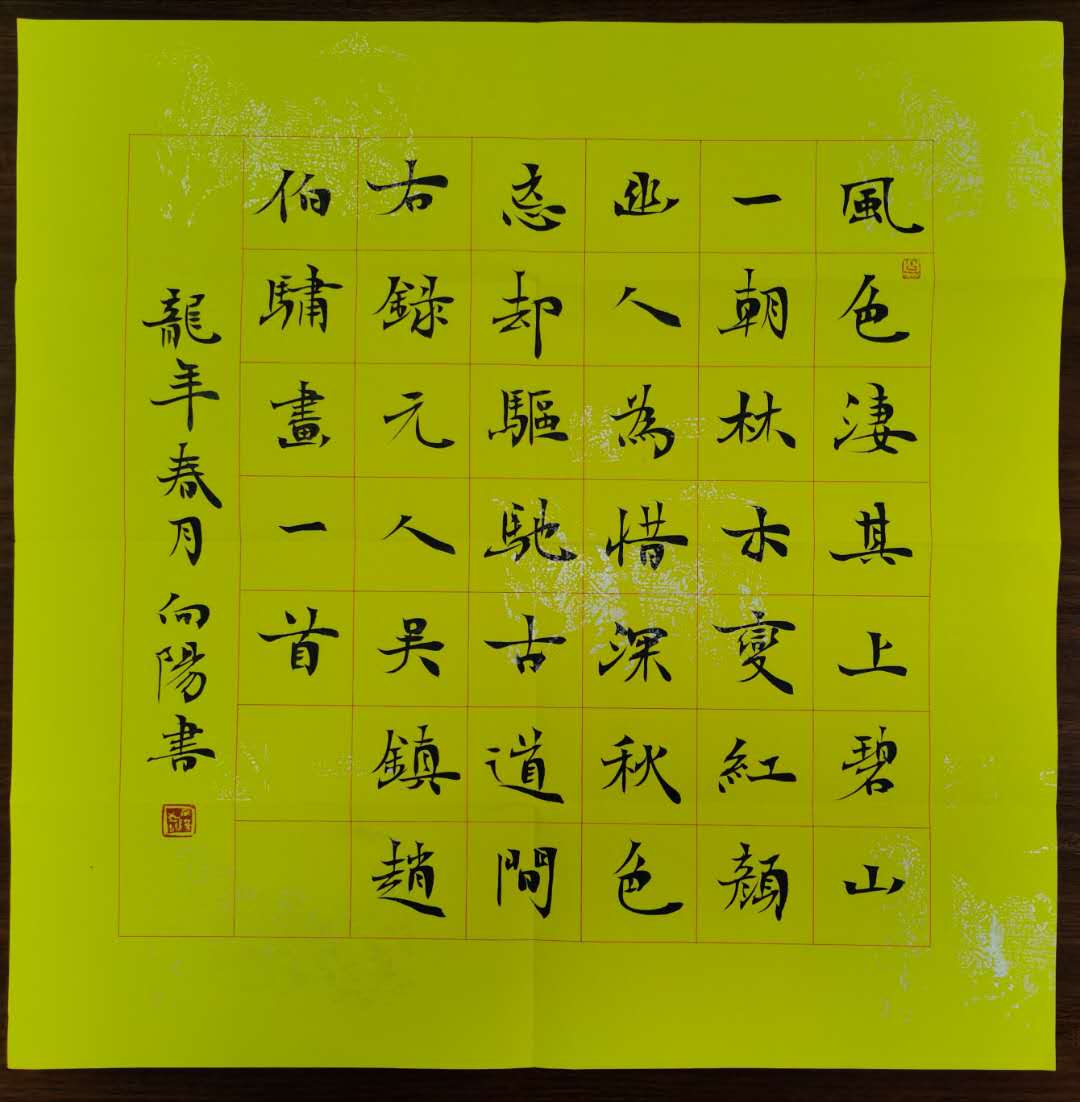 風色淒其上碧山
一朝林木變紅顏
幽人為惜深秋色
忘却驅馳古道間
右錄元人吳鎮趙
伯驌畫一首
龍年春月向陽書